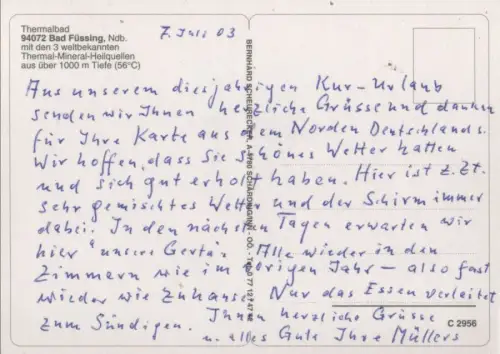 Thermalbad
94072 Bad Füssing, Ndb.
mit den 3 weltbekannten
Thermal-Mineral-Heilquellen
aus über 1000 m Tiefe (56°C)
7. Juli 03
Aus unserem diesjährigen Kur-Urlaub
senden wir Ihnen herzliche Grüsse und danken
für Ihre Karte aus dem Norden Deutschlands.
Wir hoffen, dass Sie schönes Wetter hatten
und sich gut erholt haben. Hier ist z.Zt.
sehr gemischtes Wetter und der Schirm immer
dabei. In den nächsten Tagen erwarten wir
hier "unsere Gerta". Alle wieder in den
Zimmern wie im vorigen Jahr – also fast
wieder wie Zuhause. Nur das Essen verleitet
zum Sündigen. Ihnen herzliche Grüsse
u. alles Gute Ihre Müllers
BERNHARD
C 2956